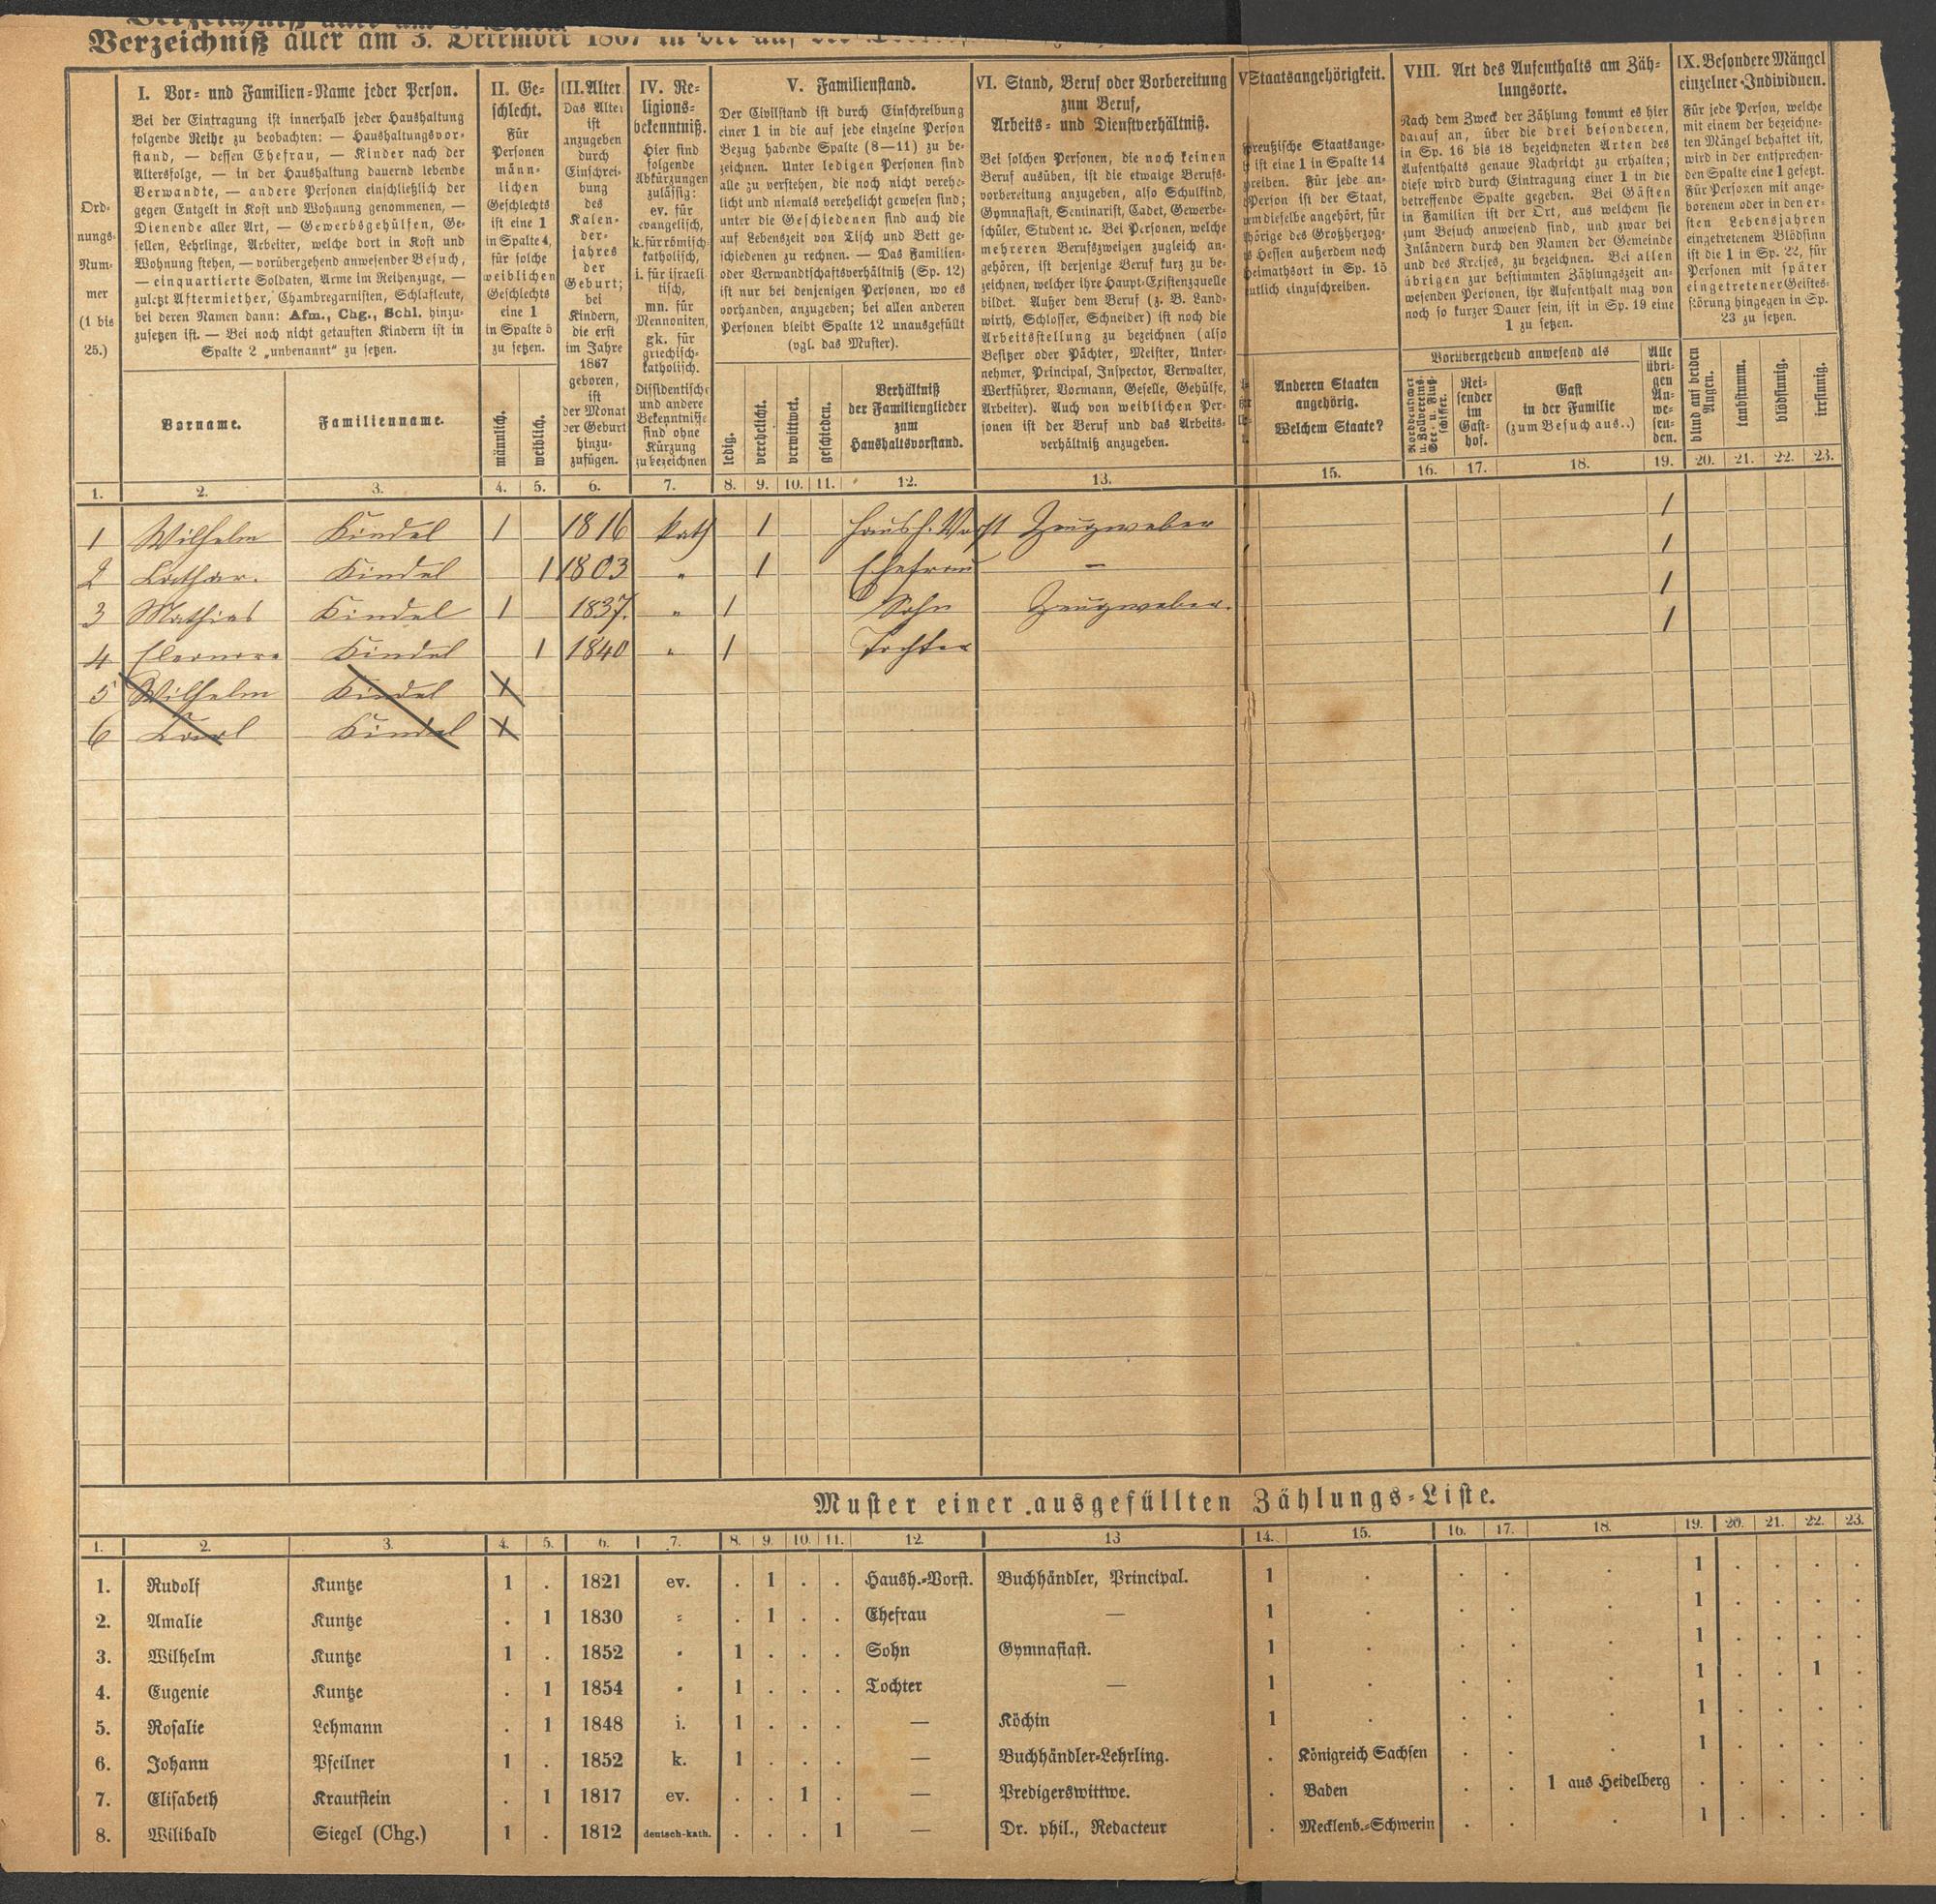 Verzeichniß aller am 3. December 1867 in der auf
I. Vor- und Familien-Name jeder Person.
Bei der Eintragung ist innerhalb jeder Haushaltung
folgende Reihe zu beobachten: — Haushaltungsvor-
stand, — dessen Ehefrau, — Kinder nach der
Altersfolge, — in der Haushaltung dauernd lebende
Verwandte, — andere Personen einschließlich der
gegen Entgelt in Kost und Wohnung genommenen, —
Dienende aller Art, — Gewerbsgehülfen, Ge-
sellen, Lehrlinge, Arbeiter, welche dort in Kost und
Wohnung stehen, — vorübergehend anwesender Besuch,
— einquartierte Soldaten, Arme im Reihenzuge, —
zuletzt Aftermiether, Chambregarnisten, Schlafleute,
bei deren Namen dann: Afm., Chg., Schl. hinzu-
zusetzen ist. — Bei noch nicht getauften Kindern ist in
Spalte 2 „unbenannt“ zu setzen.
Ord-
nungs-
Num-
mer
(1 bis
25.)
Vorname.
Familienname.
II. Ge-
schlecht.
Für
Personen
männ-
lichen
Geschlechts
ist eine 1
in Spalte 4,
für solche
weiblichen
Geschlechts
eine 1
in Spalte 5
zu setzen.
männlich.
weiblich.
III. Alter
Das Alter
ist
anzugeben
durch
Einschrei-
bung
des
Kalen-
der-
jahres
der
Geburt;
bei
Kindern,
die erst
im Jahre
1867
geboren,
ist
der Monat
der Geburt
hinzu-
zufügen.
IV. Re-
ligions-
bekenntniß.
Hier sind
folgende
Abkürzungen
zulässig:
ev. für
evangelisch,
k. für römisch-
katholisch,
i. für israeli-
tisch,
mn. für
Mennoniten,
gk. für
griechisch-
katholisch.
Dissidentische
und andere
Bekenntnisse
sind ohne
Kürzung
zu bezeichnen
V. Familienstand.
Der Civilstand ist durch Einschreibung
einer 1 in die auf jede einzelne Person
Bezug habende Spalte (8—11) zu be-
zeichnen. Unter ledigen Personen sind
alle zu verstehen, die noch nicht verehe-
licht und niemals verehelicht gewesen sind;
unter die Geschiedenen sind auch die
auf Lebenszeit von Tisch und Bett ge-
schiedenen zu rechnen. — Das Familien-
oder Verwandtschaftsverhältniß (Sp. 12)
ist nur bei denjenigen Personen, wo es
vorhanden, anzugeben; bei allen anderen
Personen bleibt Spalte 12 unausgefüllt
(vgl. das Muster).
ledig.
verehelicht.
verwittwet.
geschieden.
Verhältniß
der Familienglieder
zum
Haushaltsvorstand.
VI. Stand, Beruf oder Vorbereitung
zum Beruf,
Arbeits- und Dienstverhältniß.
Bei solchen Personen, die noch keinen
Beruf ausüben, ist die etwaige Berufs-
vorbereitung anzugeben, also Schulkind,
Gymnasiast, Seminarist, Cadet, Gewerbe-
schüler, Student ꝛc. Bei Personen, welche
mehreren Berufszweigen zugleich an-
gehören, ist derjenige Beruf kurz zu be-
zeichnen, welcher ihre Haupt-Existenzquelle
bildet. Außer dem Beruf (z. B. Land-
wirth, Schlosser, Schneider) ist noch die
Arbeitsstellung zu bezeichnen (also
Besitzer oder Pächter, Meister, Unter-
nehmer, Principal, Inspector, Verwalter,
Werkführer, Vormann, Geselle, Gehülfe,
Arbeiter). Auch von weiblichen Per-
sonen ist der Beruf und das Arbeits-
verhältniß anzugeben.
Staatsangehörigkeit.
preußische Staatsange-
ist eine 1 in Spalte 14
Für jede an-
Person ist der Staat,
dieselbe angehört, für
des Großherzog-
Hessen außerdem noch
Heimathsort in Sp. 15
einzuschreiben.
Anderen Staaten
angehörig.
Welchem Staate?
VIII. Art des Aufenthalts am Zäh-
lungsorte.
Nach dem Zweck der Zählung kommt es hier
darauf an, über die drei besonderen,
in Sp. 16 bis 18 bezeichneten Arten des
Aufenthalts genaue Nachricht zu erhalten;
diese wird durch Eintragung einer 1 in die
betreffende Spalte gegeben. Bei Gästen
in Familien ist der Ort, aus welchem sie
zum Besuch anwesend sind, und zwar bei
Inländern durch den Namen der Gemeinde
und des Kreises, zu bezeichnen. Bei allen
übrigen zur bestimmten Zählungszeit an-
wesenden Personen, ihr Aufenthalt mag von
noch so kurzer Dauer sein, ist in Sp. 19 eine
1 zu setzen.
Vorübergehend anwesend als
Norddeutscher
u. Zollvereins-
See- u. Fluß-
schiffer.
Rei-
sender
im
Gast-
hof.
Gast
in der Familie
(zum Besuch aus..)
Alle
übri-
gen
An-
we-
sen-
den.
IX. Besondere Mängel
einzelner Individuen.
Für jede Person, welche
mit einem der bezeichne-
ten Mängel behaftet ist,
wird in der entsprechen-
den Spalte eine 1 gesetzt.
Für Personen mit ange-
borenem oder in den er-
sten Lebensjahren
eingetretenem Blödsinn
ist die 1 in Sp. 22, für
Personen mit später
eingetretener Geistes-
störung hingegen in Sp.
23 zu setzen.
blind auf beiden
Augen.
taubstumm.
blödsinnig.
irrsinnig.
1. 2. 3. 4. 5. 6. 7. 8. 9. 10. 11. 12. 13. 15. 16. 17. 18. 19. 20. 21. 22. 23.
1 Wilhelm Kindel 1 1816 kath 1 Haush. Vorst Zeugweber 1
2 Cathar. Kindel 1 1803 " 1 Ehefrau — 1
3 Mathias Kindel 1 1837. " 1 Sohn Zeugweber. 1
4 Eleonora Kindel 1 1840 " 1 Tochter 1
5 Wilhelm Kindel
6 Carl Kindel
Muster einer ausgefüllten Zählungs-Liste.
1. 2. 3. 4. 5. 6. 7. 8. 9. 10. 11. 12. 13 14. 15. 16. 17. 18. 19. 20. 21. 22. 23.
1. Rudolf Kuntze 1 . 1821 ev. . 1 . . Haush.-Vorst. Buchhändler, Principal. 1 . . . . 1 . . . .
2. Amalie Kuntze . 1 1830 " . 1 . . Ehefrau — 1 . . . . 1 . . . .
3. Wilhelm Kuntze 1 . 1852 " 1 . . . Sohn Gymnasiast. 1 . . . . 1 . . . .
4. Eugenie Kuntze . 1 1854 " 1 . . . Tochter — 1 . . . . 1 . . 1 .
5. Rosalie Lehmann . 1 1848 i. 1 . . . — Köchin 1 . . . . 1 . . . .
6. Johann Pfeilner 1 . 1852 k. 1 . . . — Buchhändler-Lehrling. . Königreich Sachsen . . . 1 . . . .
7. Elisabeth Krautstein . 1 1817 ev. . . 1 . — Predigerswittwe. . Baden . . 1 aus Heidelberg . . . . .
8. Wilibald Siegel (Chg.) 1 . 1812 deutsch-kath. . . . 1 — Dr. phil., Redacteur . Mecklenb.-Schwerin . . . 1 . . . .